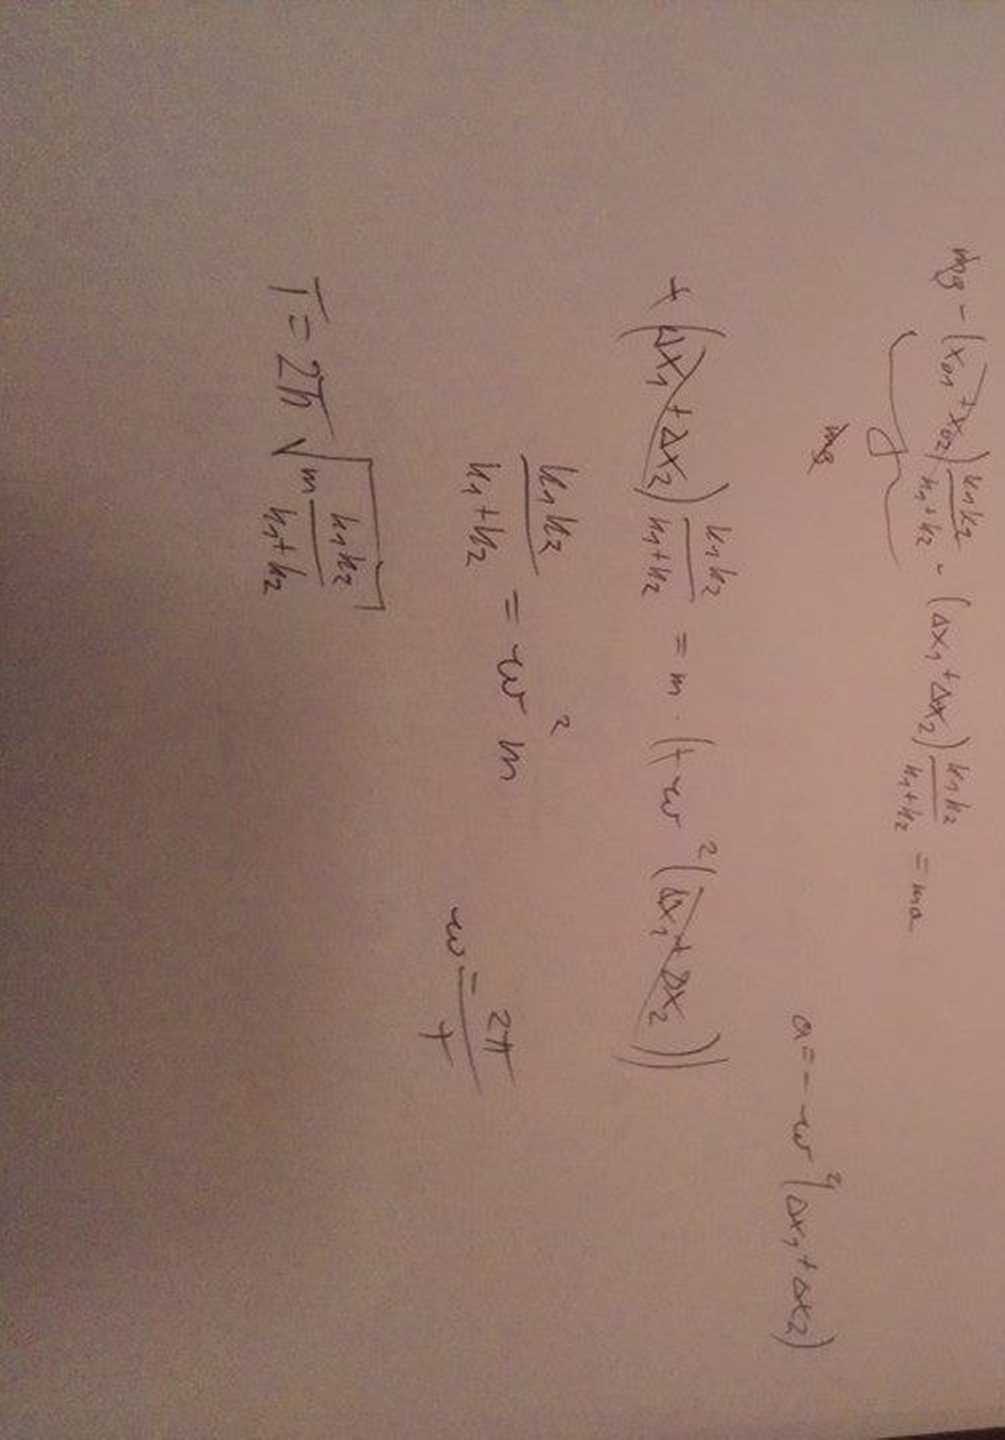 mg - (x₀₁ + x₀₂) k₁k₂/(k₁+k₂) - (Δx₁ + Δx₂) k₁k₂/(k₁+k₂) = ma
mg
a = - w²(Δx₁ + Δx₂)
+ (Δx₁ + Δx₂) k₁k₂/(k₁+k₂) = m · (+ w²(Δx₁ + Δx₂))
k₁k₂/(k₁+k₂) = w² m
w = 2π/T
T = 2π √(m k₁k₂/(k₁+k₂))